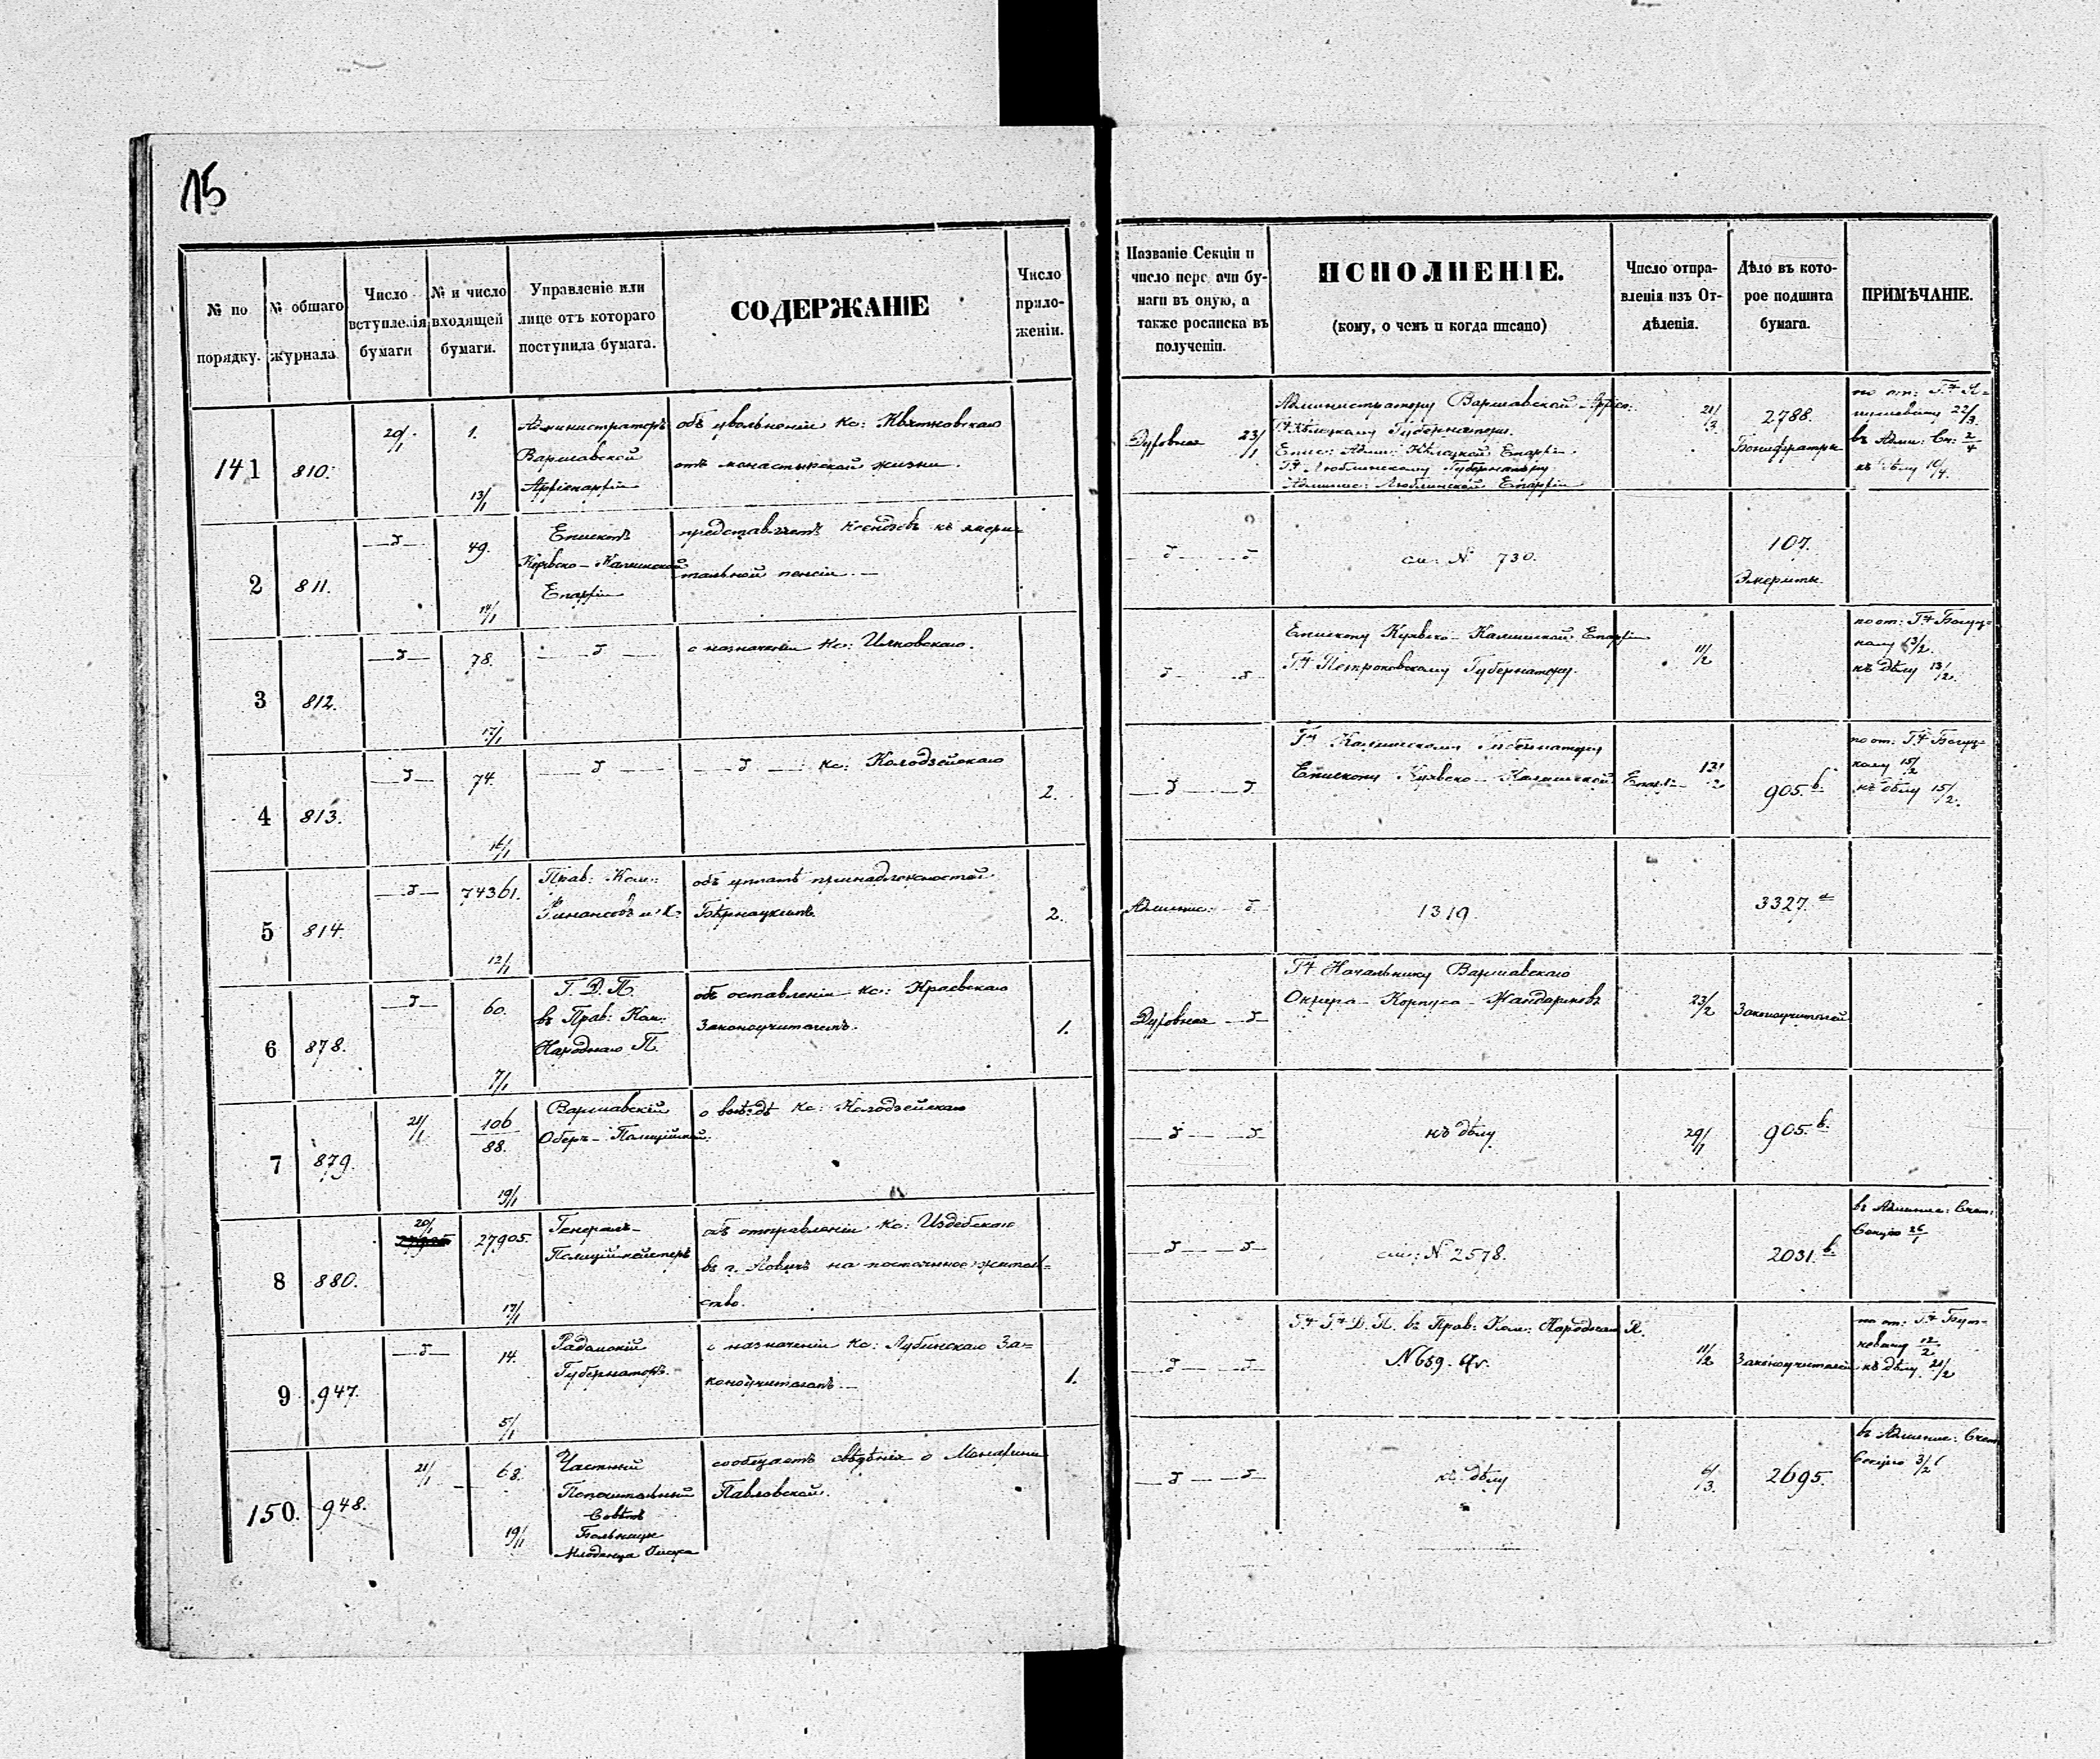 15
№ по порядку.
№ общаго журнала
Число вступленія бумаги
№ и число входящей бумаги.
Управленіе или лице отъ котораго поступила бумага.
СОДЕРЖАНІЕ
Число приложеній.
Названіе Секціи и число пере ачи бумаги въ оную, а также росписка въ полученіи.
ИСПОЛНЕНІЕ.
(кому, о чемъ и когда писано)
Число отправленія изъ Отдѣленія.
Дѣло въ которое подшита бумага.
ПРИМѢЧАНІЕ.
141
810.
20/1
1.
13/1
Администраторъ
Варшавской
Архіепархіи
объ увольненіи Кс: Квятковскаго
отъ монастырской жизни.
Духовная 23/1
Администратору Варшавской Архіеп:
Гу Кѣлецкому Губернатору.
Епис: Адми: Кѣлецкой Епархіи.
Гу Люблинскому Губернатору
Админис: Люблинской Епархіи
21/3.
2788.
Бонифратры
по от: Гу
22/3.
въ Адми: Сч: 2/4
къ дѣлу 10/4.
2
811.
49.
14/1
Епископъ
Куявско-Калишской
Епархіи
представляетъ Ксендзовъ къ эмери-
тальной пенсіи.
см: № 730.
107.
Эмериты.
3
812.
78.
17/1
о назначеніи Кс: Илковскаго.
Епископу Куявско-Калишской Епархіи
Гу Петроковскому Губернатору.
11/2
по от: Гу Богуц-
кому 13/2.
къ дѣлу 13/2.
4
813.
74.
16/1
Кс: Колодзейскаго
2.
Гу Калишскому Губернатору
Епископу Куявско-Калишской Епархіи
13/2
905.b.
по от: Гу Богуц-
кому 15/2
къ дѣлу 15/2.
5
814.
74361.
12/1
Прав: Ком:
Финансовъ и К:
объ уплатѣ принадлежностей
2.
Админис:
1319.
3327.a
6
878.
60.
7/1
Г. Д. П.
въ Прав: Ком:
Народнаго П.
объ оставленіи Кс: Краевскаго
Законоучителемъ.
1.
Духовная
Гу Начальнику Варшавскаго
Округа Корпуса Жандармовъ
23/2
Законоучителей
7
879.
21/1
106
88.
19/1
Варшавскій
Оберъ-Полицій
о выѣздѣ Кс: Колодзейскаго
къ дѣлу
29/1
905.b.
8
880.
20/1
27905.
17/1
Генералъ-
Полиціймейстеръ
объ отправленіи Кс: Издебскаго
въ г. Ловичъ на постоянное житель-
ство.
см: № 2578.
2031.b.
въ Админис: Счет:
Секцію 26/1
9
947.
14.
5/1
Радомскій
Губернаторъ.
о назначеніи Кс: Лубинскаго За-
коноучителемъ.
1.
Гу Гу Д. П. въ Прав: Ком: Народнаго П.
№ 659.
11/2
Законоучителей
по от: Гу
12/2
къ дѣлу 21/2
150.
948.
21/1
68.
19/1
Частный
Попечительный
Совѣтъ
Больницы
Младенца Іисуса
сообщаетъ свѣдѣнія о Монахини
Павловской.
къ дѣлу
6/3.
2695.
въ Админис: Счет:
Секцію 3/2